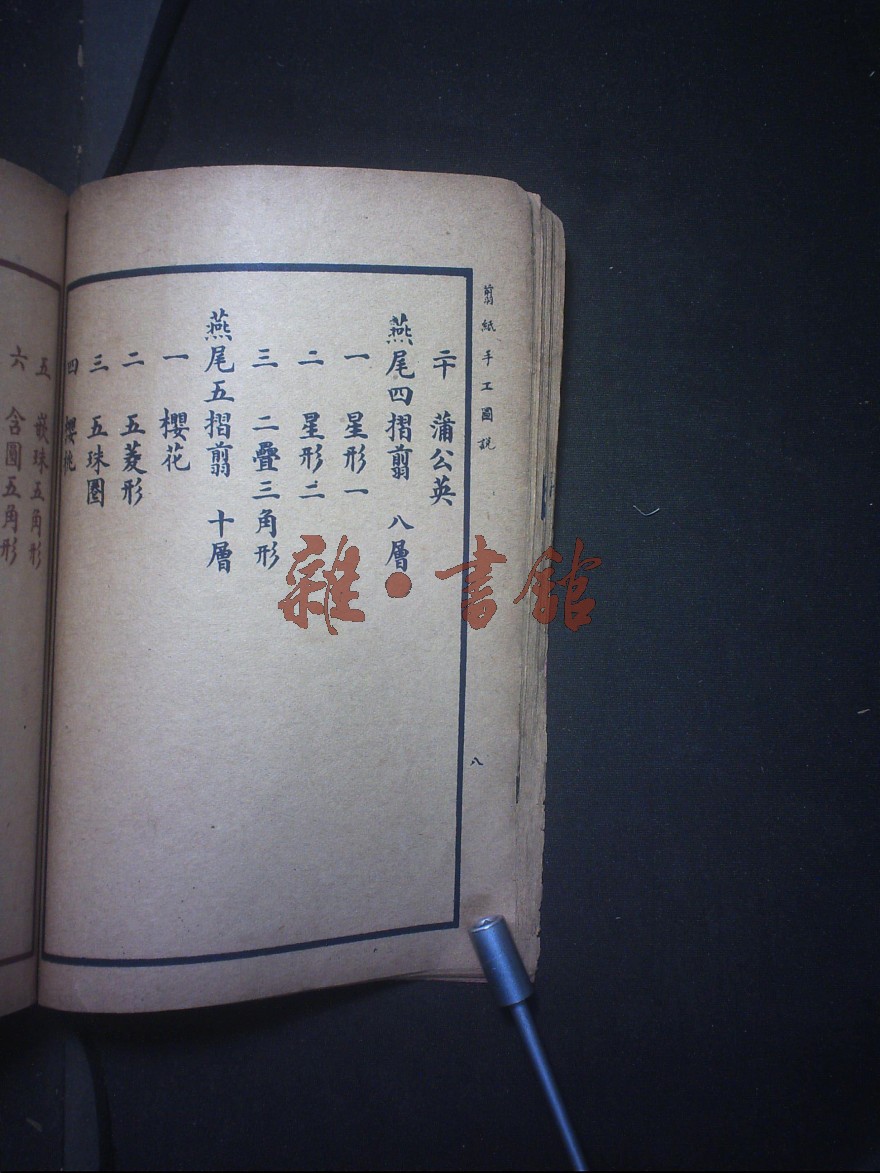 翦紙手工圖説
八
二十 蒲公英
燕尾四摺翦 八層
一 星形一
二 星形二
三 二疊三角形
燕尾五摺翦 十層
一 櫻花
二 五菱形
三 五珠圈
四 櫻桃
五 嵌珠五角形
六 含圓五角形
雜·書館